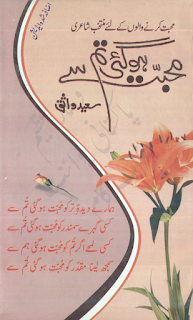 محبت کرنے والوں کے لئے منتخب شاعری
محبت ہو گئی تم سے
سعید واثق
ہمارے دیدۂ تر کو محبت ہو گئی تم سے
کسی گہرے سمندر کو محبت ہو گئی تم سے
کسی لمحے اگر تم کو محبت ہو گئی ہم سے
سمجھ لینا مقدر کو محبت ہو گئی تم سے